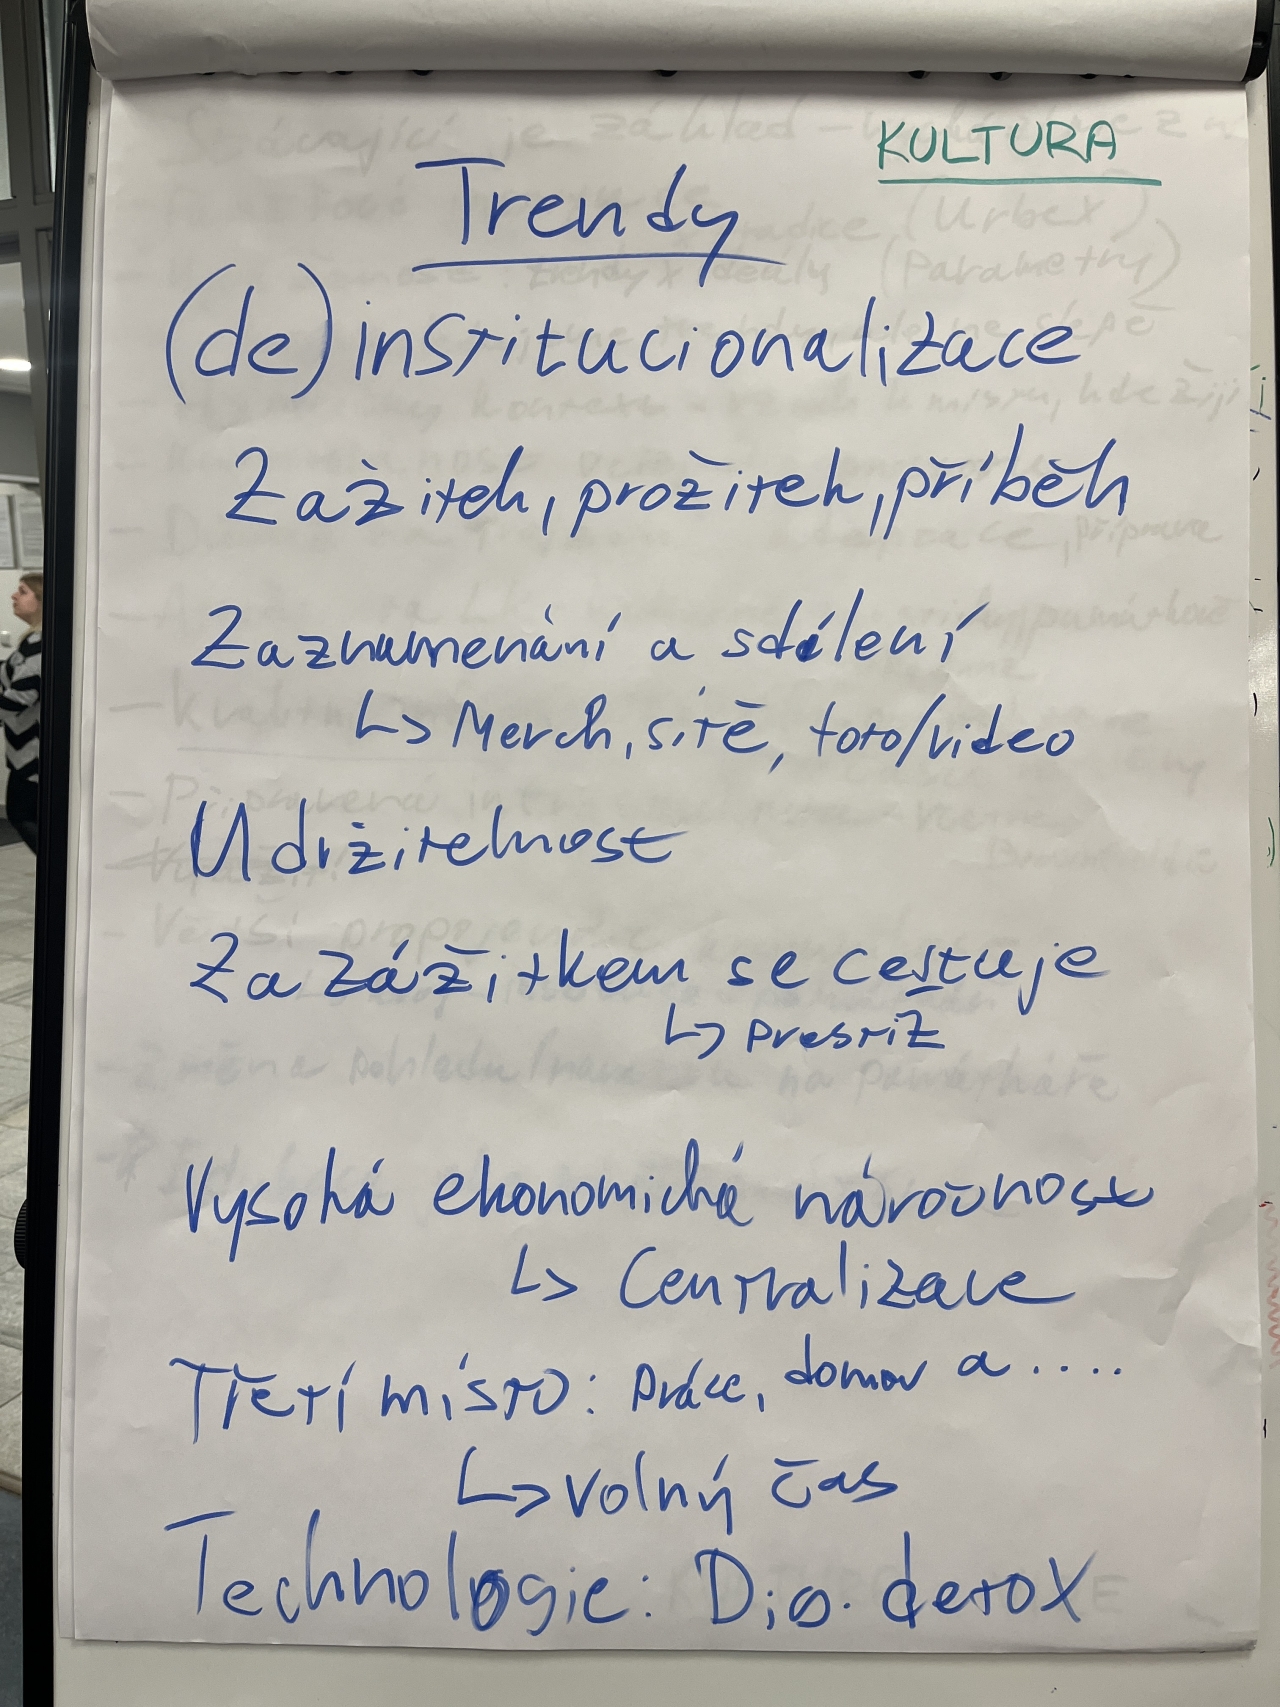 KULTURA
Trendy
(de)institucionalizace
Zažitek, prožitek, příběh
Zaznamenání a sdílení
↳ Merch, sítě, foto/video
Udržitelnost
Za zážitkem se cestuje
↳ prestiž
Vysoká ekonomická náročnost
↳ Centralizace
Třetí místo: práce, domov a ....
↳ volný čas
Technologie: Dig. detox